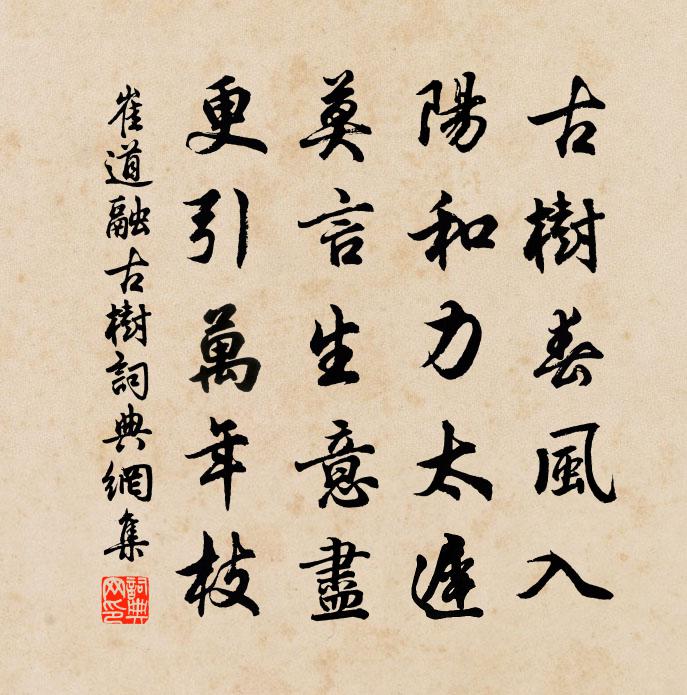 古樹春風入
陽和力太遲
莫言生意盡
更引萬年枝
崔道融古樹詞典網集
詞典